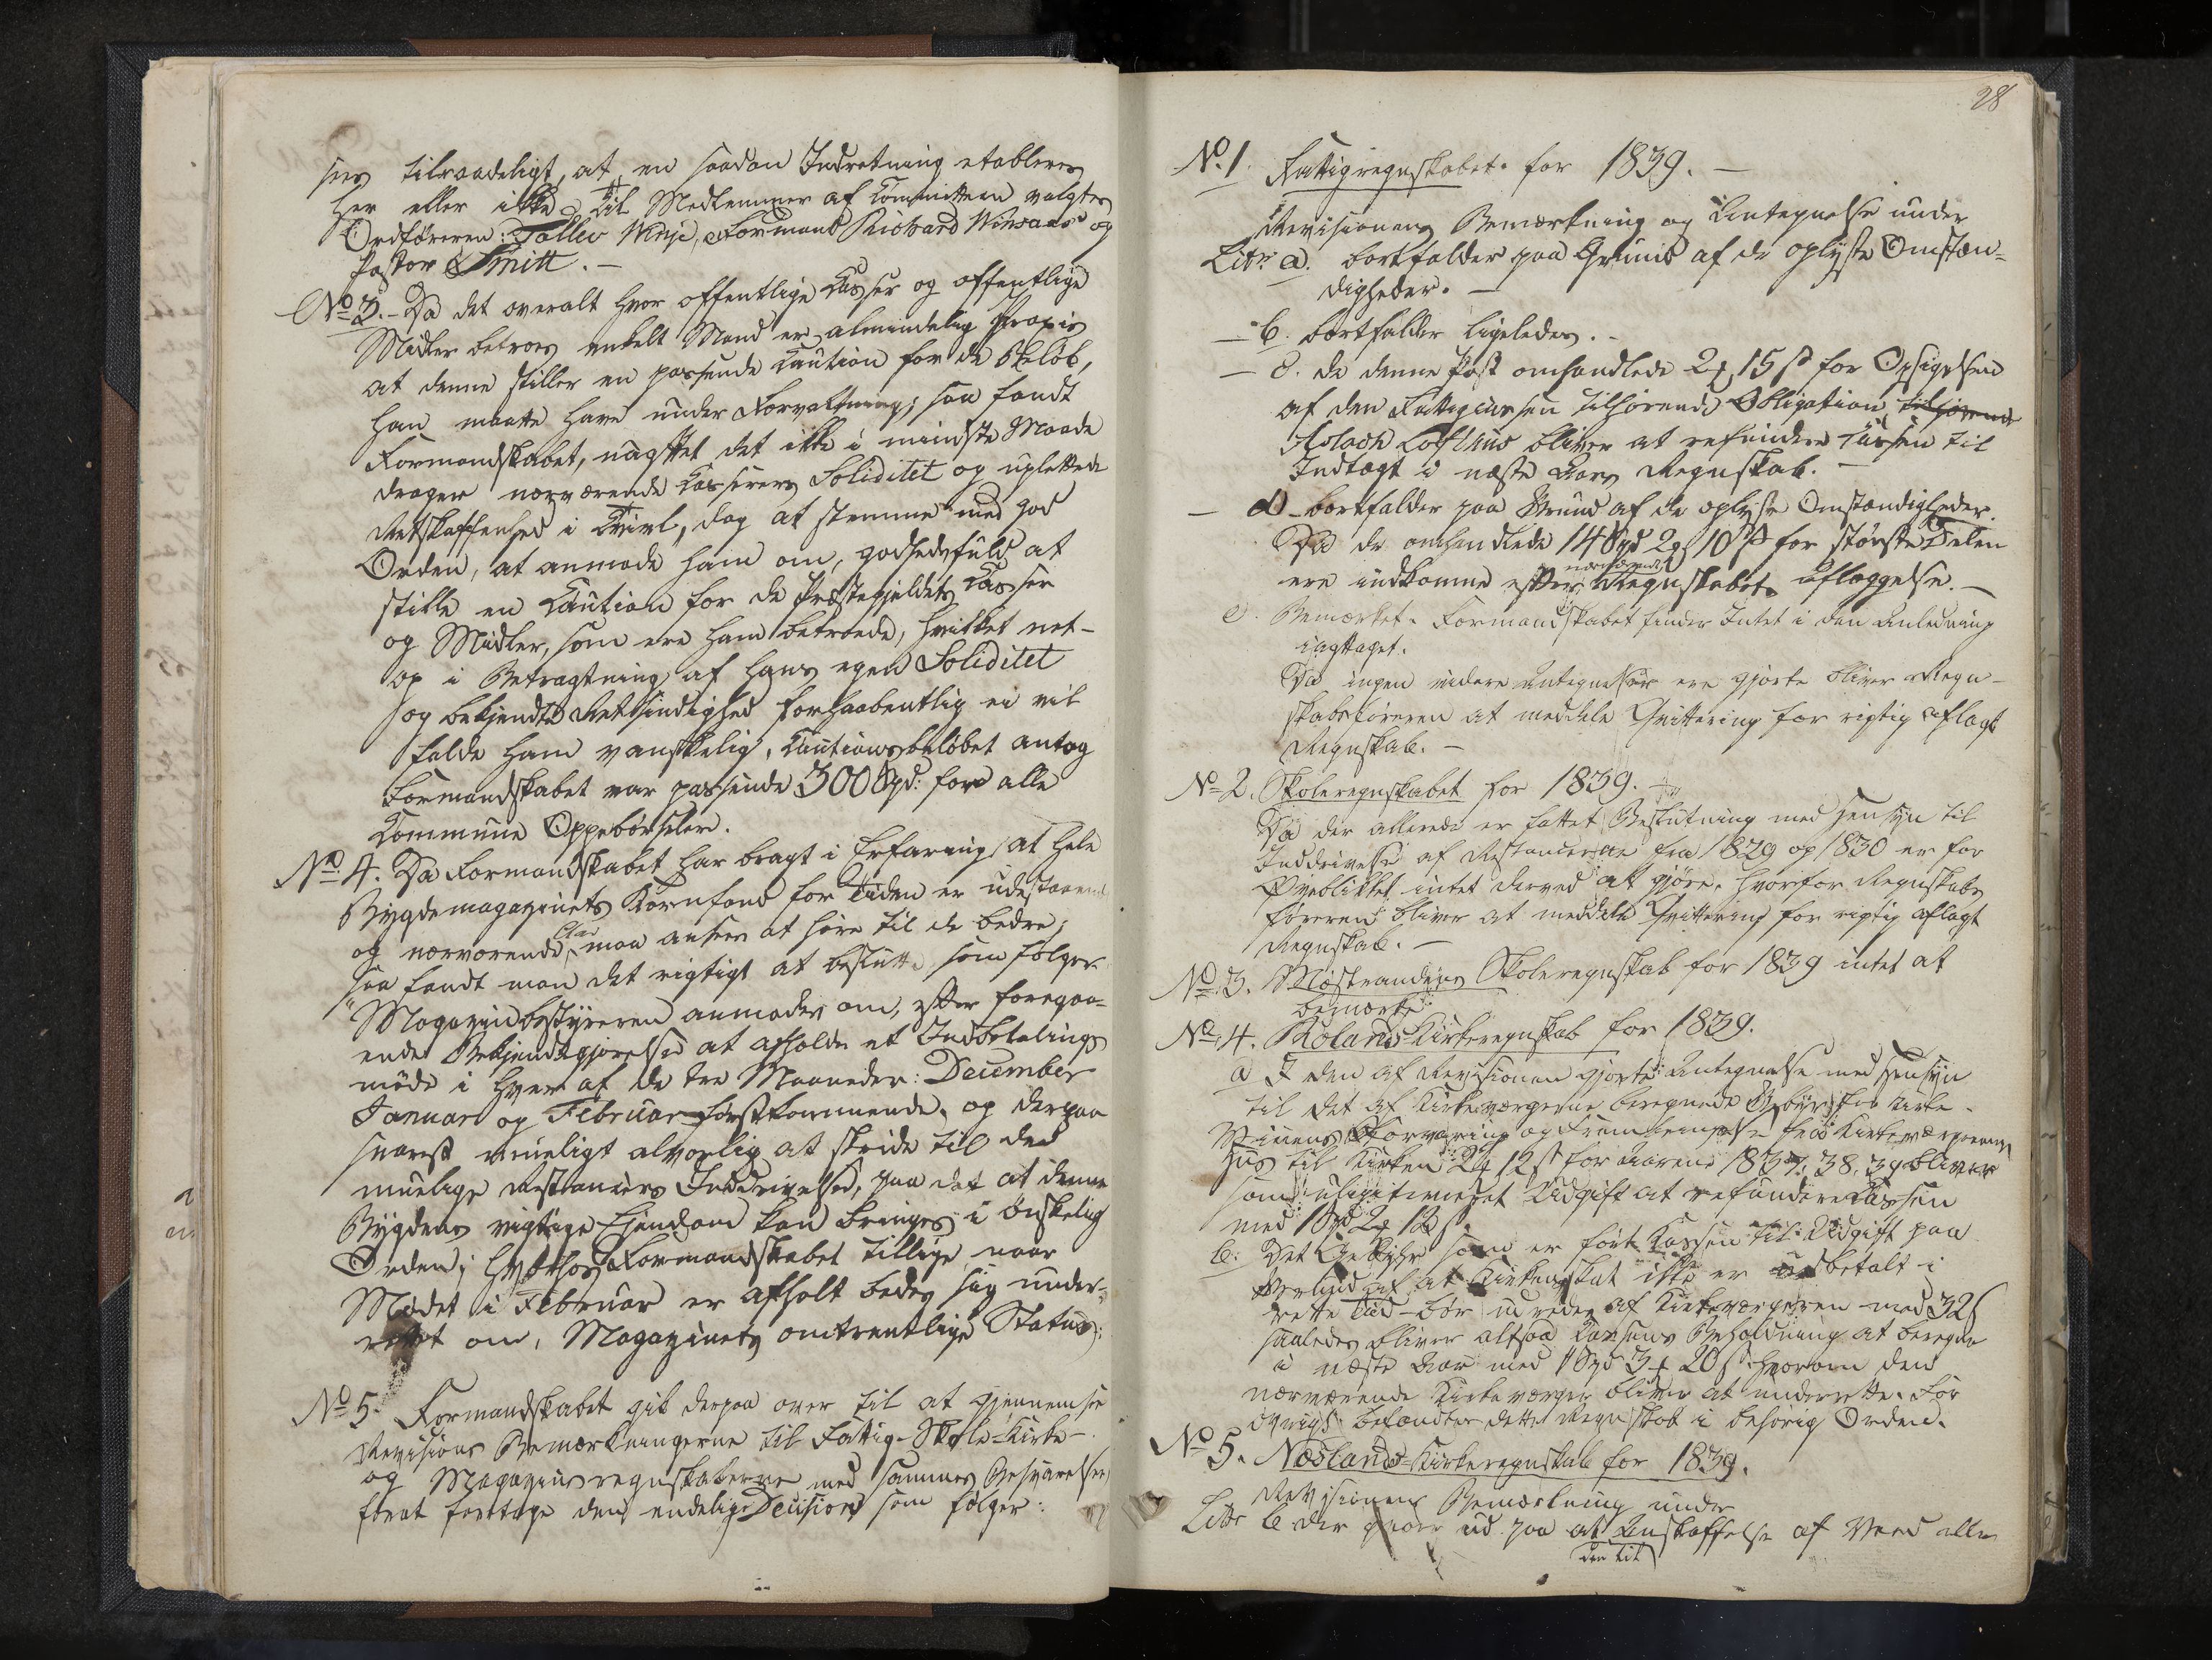 sees tilraadeligt, at en saadan Indretning etableres
her eller ikke. Til Medlemmer af Committeen valgtes
Ordføreren: Tollev Winje, Formand Richard Winsaas og
Pastor Smitt. —
No 3. Da det overalt hvor offentlige Casser og offentlige
Midler betroes enkelt Mand er almindelig Praxis
at denne stiller en passende Caution for de Beløb,
han maatte have under Forvaltning; saa fandt
Formandskabet, uagtet det ikke i mindste Maade
drager nærværende Casserers Soliditet og uplettede
Retskaffenhed i Tvivl, dog at stemme med god
Orden, at anmode ham om, godhedsfuld at
stille en Caution for de Præstegjeldets Casser
og Midler, som ere ham betroede, hvilket net-
op i Betragtning af hans egen Soliditet
og bekjendte Retsindighed forhaabentlig ei vil
falde ham vanskelig. Cautionsbeløbet antog
Formandskabet var passende 300 Spd: for alle
Commune Oppebørseler.
No 4. Da Formandskabet har bragt i Erfaring, at hele
Bygdemagazinets Kornfond for Tiden er udestaaende
og nærværende Aar maa ansees at høre til de bedre;
saa fandt man det rigtigt at beslutte som følger
"Magazinbestyreren anmodes om, efter foregaa-
ende Bekjendtgjørelse at afholde et Indbetalings
møde i hver af de tre Maaneder: December
Januar og Februar førstkommende, og derpaa
snarest mueligt alvorlig at skride til den
muelige Restancers Inddrivelse, paa det at denne
Bygdens vigtige Eiendom kan bringes i ønskelig
Orden; hvorhos Formandskabet tillige naar
Mødet i Februar er afholt bedes sig under-
rettet om, Magazinets omtrentlige Status;
No 5. Formandskabet gik derpaa over til at gjennemsee
Revisions Bemærkningerne til Fattig- Skole- Kirke-
og Magazinregnskaberne med sammes Besvarelser,
forat foretage den endelige Decision som følger:
28
No 1. Fattigregnskabet for 1839. —
Revisionens Bemærkning og Antegnelse under
Litr a. bortfalder paa Grund af de oplyste Omstæn-
digheder. —
— b. bortfalder ligeledes. -
— c. de denne Post omhandlede 2 15 s for Opsigelsen
af den Fattigcassen tilhørende Obligation tilhørende
Aslach Loftsund bliver at refundere Cassen til
Indtægt i næste Aars Regnskab. —
— d bortfalder paa Grund af de oplyste Omstændigheder.
Da de omhandlede 14 Spd 2 10 s for største Delen
ere indkomne efter nærværende Regnskabets Aflæggelse. —
e. Bemærket. Formandskabet finder Intet i den Anledning
iagttaget.
Da ingen videre Antegnelser ere gjorte bliver Regn-
skabsføreren at meddele Qvittering for rigtig aflagt
Regnskab. —
No 2. Skoleregnskabet for 1839.
Da der allerede er fattet Beslutning med Hensyn til
Inddrivelse af Restancerne fra 1829 og 1830 er for
Øyeblikket intet derved at gjøre, hvorfor Regnskabs
føreren bliver at meddele Qvittering for rigtig aflagt
Regnskab. —
No 3. Møstrandens Skoleregnskab for 1839 intet at
bemærke
No 4. Rolands Kirkeregnskab for 1839.
a I den af Revisionen gjorte Antegnelse med Hensyn
til det af Kirkeværgerne beregnede Gebyr for Kirke-
Vinens Forvaring og Frembringelse fra Kirkeværgernes
Huus til Kirken 2 12 s for Aarene 1837, 38, 39 bliver
som ulegitimeret Udgift at refundere Cassen
med 1 Spd 2 12 s.
b: Det Gebyhr som er ført Cassen til Udgift paa
Grund af at Kirkeskat ikke er udbetalt i
rette Tid bør udredes af Kirkeværgeren med 32 s
saaledes bliver altsaa Cassens Beholdning at beregne
i næste Aar med 1 Spd 3 20 s. hvorom den
nærværende Kirkeværger bliver at underrette. For
øvrigt befandtes dette Regnskab i behørig Orden.
No 5. Næslands Kirkeregnskab for 1839.
Revisionens Bemærkning under
Litr b der gaaer ud paa at Anskaffelse af Veed eller
den til